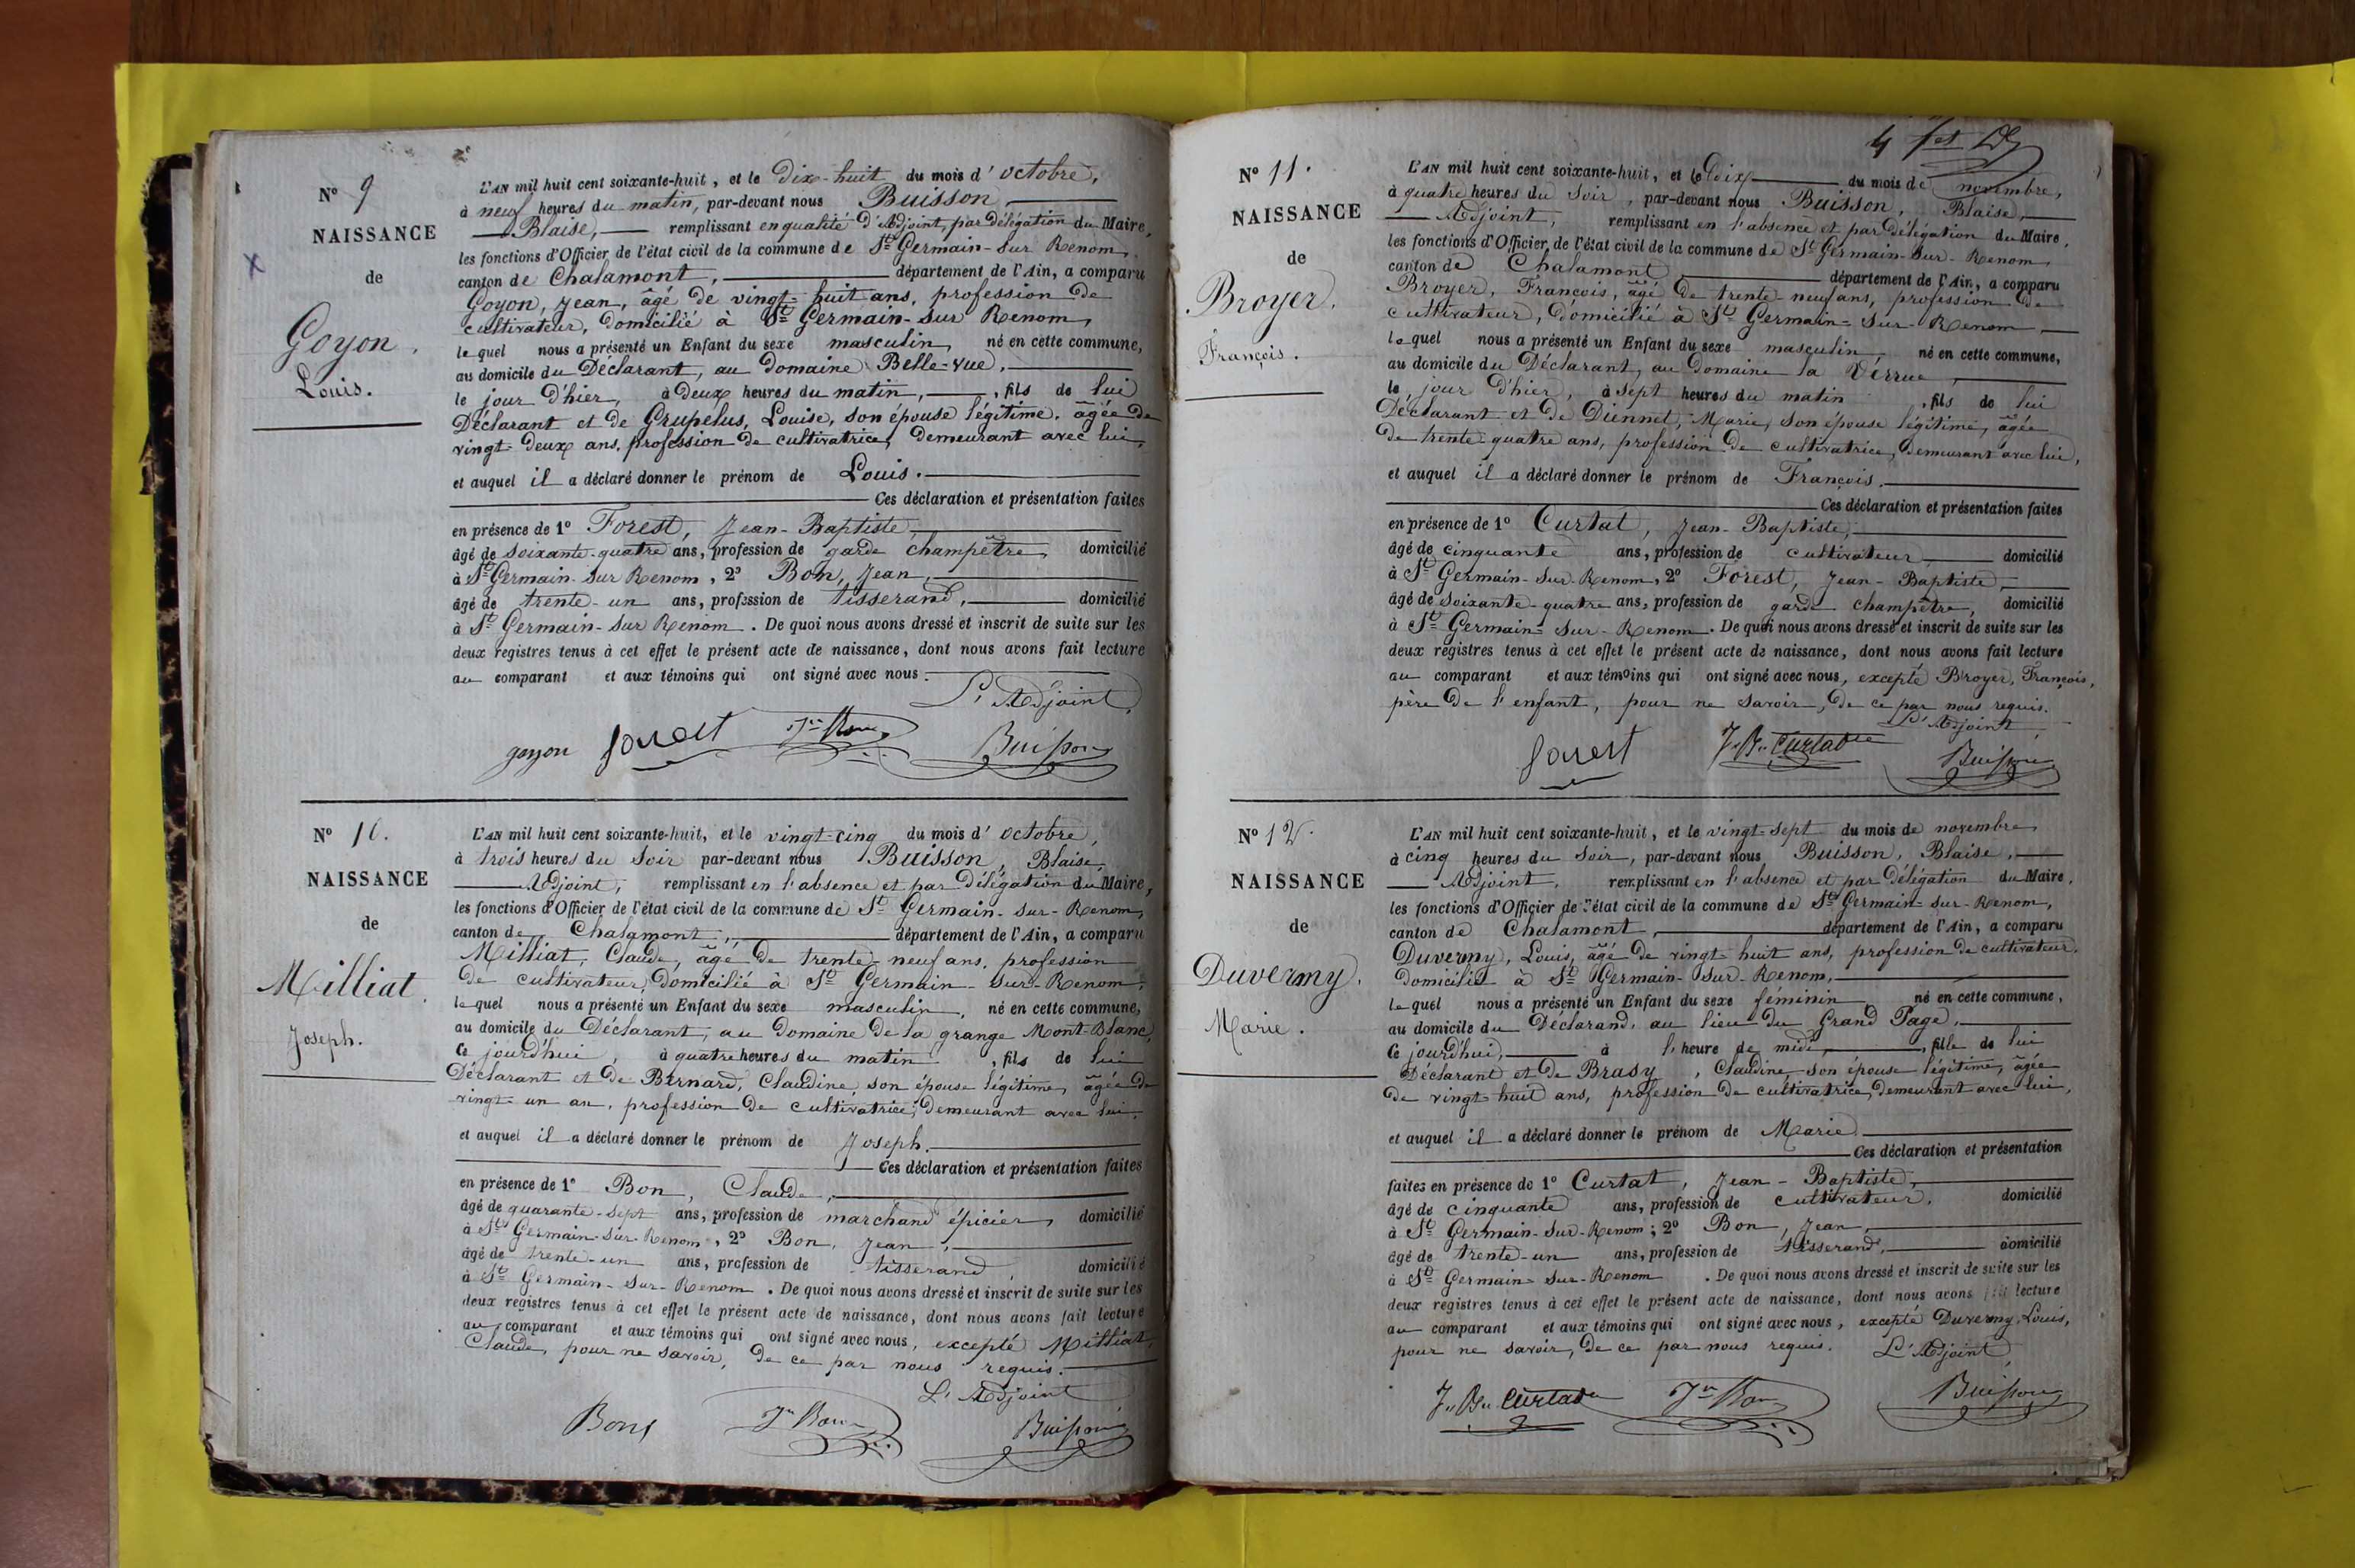 N° 9
NAISSANCE
de
Goyon.
Louis.
L'AN mil huit cent soixante-huit, et le dix-huit du mois d'octobre,
à neuf heures du matin, par-devant nous Buisson
Blaise, remplissant en qualité d'Adjoint, par délégation du Maire,
les fonctions d'Officier de l'état civil de la commune de St Germain-sur Renom,
canton de Chalamont, département de l'Ain, a comparu
Goyon, Jean, âgé de vingt-huit ans, profession de
cultivateur, domicilié à St Germain-sur Renom,
lequel nous a présenté un Enfant du sexe masculin, né en cette commune,
au domicile du Déclarant, au domaine Belle-vue,
le jour d'hier, à deux heures du matin, fils de lui
Déclarant et de Grupelus, Louise, son épouse légitime, âgée de
vingt-deux ans, profession de cultivatrice, demeurant avec lui,
et auquel il a déclaré donner le prénom de Louis.
Ces déclaration et présentation faites
en présence de 1° Forest, Jean-Baptiste,
âgé de soixante-quatre ans, profession de garde champêtre, domicilié
à St Germain-sur Renom, 2° Bon, Jean,
âgé de trente-un ans, profession de tisserand, domicilié
à St Germain-sur Renom. De quoi nous avons dressé et inscrit de suite sur les
deux registres tenus à cet effet le présent acte de naissance, dont nous avons fait lecture
au comparant et aux témoins qui ont signé avec nous.
L'Adjoint,
goyon forest Jn Bon Buisson
N° 10.
NAISSANCE
de
Milliat.
Joseph.
L'AN mil huit cent soixante-huit, et le vingt-cinq du mois d'octobre,
à trois heures du soir par-devant nous Buisson, Blaise,
Adjoint, remplissant en l'absence et par délégation du Maire,
les fonctions d'Officier de l'état civil de la commune de St Germain-sur-Renom,
canton de Chalamont, département de l'Ain, a comparu
Milliat, Claude, âgé de trente-neuf ans, profession
de cultivateur, domicilié à St Germain-sur-Renom,
lequel nous a présenté un Enfant du sexe masculin, né en cette commune,
au domicile du Déclarant, au domaine de la grange Mont-Blanc,
Ce jourd'hui, à quatre heures du matin, fils de lui
Déclarant et de Bernard, Claudine son épouse légitime, âgée de
vingt-un an, profession de cultivatrice, demeurant avec lui,
et auquel il a déclaré donner le prénom de Joseph.
Ces déclaration et présentation faites
en présence de 1° Bon, Claude,
âgé de quarante-sept ans, profession de marchand épicier, domicilié
à St Germain-sur-Renom, 2° Bon, Jean,
âgé de trente-un ans, profession de tisserand, domicilié
à St Germain-sur-Renom. De quoi nous avons dressé et inscrit de suite sur les
deux registres tenus à cet effet le présent acte de naissance, dont nous avons fait lecture
au comparant et aux témoins qui ont signé avec nous, excepté Milliat,
Claude, pour ne savoir, de ce par nous requis.
L'Adjoint
Bon Jn Bon Buisson
N° 11.
NAISSANCE
de
Broyer.
François.
L'AN mil huit cent soixante-huit, et le Dix du mois de novembre,
à quatre heures du soir, par-devant nous Buisson, Blaise,
Adjoint, remplissant en l'absence et par délégation du Maire,
les fonctions d'Officier de l'état civil de la commune de St Germain-sur-Renom,
canton de Chalamont département de l'Ain, a comparu
Broyer, François, âgé de trente-neuf ans, profession de
cultivateur, domicilié à St Germain-sur-Renom,
lequel nous a présenté un Enfant du sexe masculin, né en cette commune,
au domicile du Déclarant, au domaine la Verrue,
le jour d'hier, à sept heures du matin, fils de lui
Déclarant et de Diennet, Marie, son épouse légitime, âgée
de trente-quatre ans, profession de cultivatrice, demeurant avec lui,
et auquel il a déclaré donner le prénom de François.
Ces déclaration et présentation faites
en présence de 1° Curtat, Jean-Baptiste,
âgé de cinquante ans, profession de cultivateur, domicilié
à St Germain-sur-Renom, 2° Forest, Jean-Baptiste,
âgé de soixante-quatre ans, profession de garde champêtre, domicilié
à St Germain-sur-Renom. De quoi nous avons dressé et inscrit de suite sur les
deux registres tenus à cet effet le présent acte de naissance, dont nous avons fait lecture
au comparant et aux témoins qui ont signé avec nous, excepté Broyer, François,
père de l'enfant, pour ne savoir, de ce par nous requis.
L'Adjoint
forest J. Bte Curtat Buisson
N° 12.
NAISSANCE
de
Duvermy.
Marie.
L'AN mil huit cent soixante-huit, et le vingt-sept du mois de novembre,
à cinq heures du soir, par-devant nous Buisson, Blaise,
Adjoint, remplissant en l'absence et par délégation du Maire,
les fonctions d'Officier de l'état civil de la commune de St Germain-sur-Renom,
canton de Chalamont, département de l'Ain, a comparu
Duvermy, Louis, âgé de vingt huit ans, profession de cultivateur,
domicilié à St Germain-sur-Renom,
lequel nous a présenté un Enfant du sexe féminin, né en cette commune,
au domicile du Déclarand, au lieu du Grand Page,
Ce jourd'hui, à l'heure de midi, fille de lui
Déclarant et de Brasy, Claudine, son épouse légitime, âgée
de vingt-huit ans, profession de cultivatrice, demeurant avec lui,
et auquel il a déclaré donner le prénom de Marie.
Ces déclaration et présentation
faites en présence de 1° Curtat, Jean-Baptiste,
âgé de cinquante ans, profession de cultivateur, domicilié
à St Germain-sur-Renom; 2° Bon, Jean,
âgé de trente-un ans, profession de tisserand, domicilié
à St Germain-sur-Renom. De quoi nous avons dressé et inscrit de suite sur les
deux registres tenus à cet effet le présent acte de naissance, dont nous avons fait lecture
au comparant et aux témoins qui ont signé avec nous, excepté Duvermy, Louis,
pour ne savoir, de ce par nous requis. L'Adjoint,
J. Bte Curtat Jn Bon Buisson